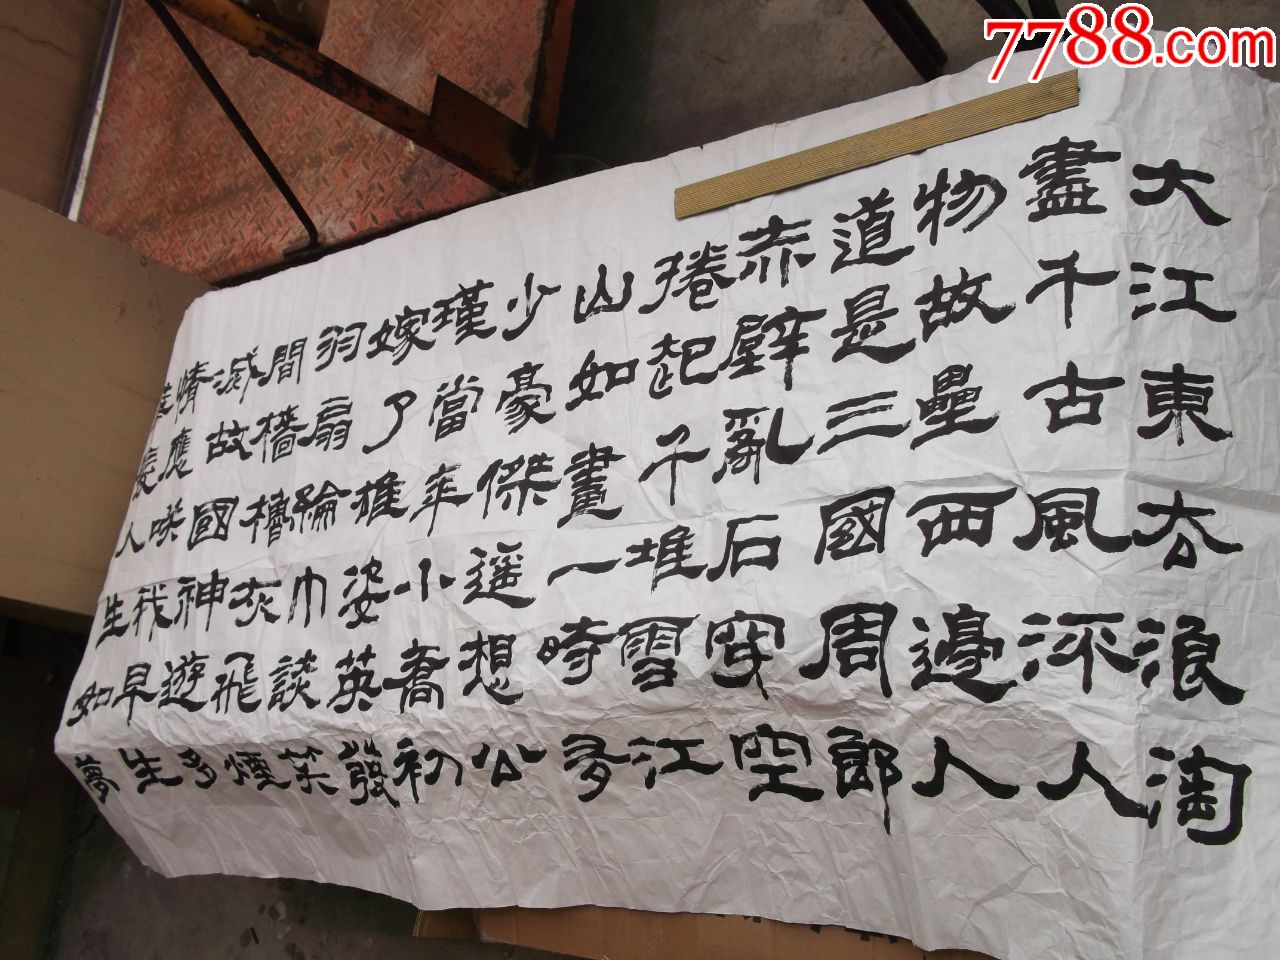 7788.com
大江東去浪淘
盡千古風流人
物故壘西邊人
道是三國周郎
赤壁亂石穿空
捲起千堆雪江
山如畫一時多
少豪傑遥想公
瑾當年小喬初
嫁了雄姿英發
羽扇綸巾談笑
間檣櫓灰飛煙
滅故國神遊多
情應笑我早生
髮人生如夢